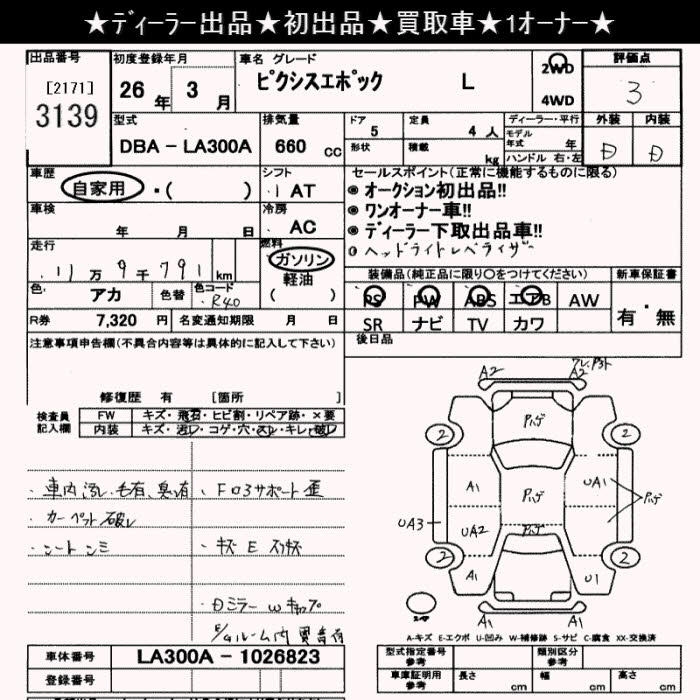 ★ディーラー出品★初出品★買取車★1オーナー★
出品番号
[2171]
3139
初度登録年月
26年 3月
車名 グレード
ピクシスエポック L
2WD
4WD
評価点
3
型式
DBA - LA300A
排気量
660 cc
ドア
5
形状
定員
4人
積載
kg
ディーラー・平行
モデル年式 年
ハンドル 右・左
外装 内装
D D
車歴
自家用・( )
シフト
AT
車検
年 月 日
冷房
AC
走行
11万9千791 km
燃料
ガソリン
軽油
( )
色
アカ
色替
色コード
R40
R券 7,320 円
名変通知期限 月 日
セールスポイント(正常に機能するものに限る)
オークション初出品!!
ワンオーナー車!!
ディーラー下取出品車!!
ヘッドライトレベライザー
装備品(純正品に限り○をつけてください)
PS PW ABS エアB AW
SR ナビ TV カワ
新車保証書
有・無
後日品
注意事項申告欄(不具合内容等は具体的に記入して下さい)
修復歴 有 [箇所 ]
検査員記入欄
FW キズ・飛石・ヒビ割・リペア跡・×要
内装 キズ・汚レ・コゲ・穴・スレ・キレ・破レ
・車内汚レ、毛有、臭有
・カーペット破レ
・シートシミ
・Fロアサポート歪
・キズ E スリキズ
・Dミラー W キャップ
A2 A2
2 2
Pハゲ
A1 Pハゲ UA1 Pハゲ
UA3 UA2 Pハゲ
2 2
A1 U1
A1 A1
A-キズ E-エクボ U-凹み W-補修跡 S-サビ C-腐食 XX-交換済
車体番号
LA300A - 1026823
登録番号
型式指定番号
参考
類別区分
参考
車庫証明用
参考
長さ cm
幅 cm
高さ cm